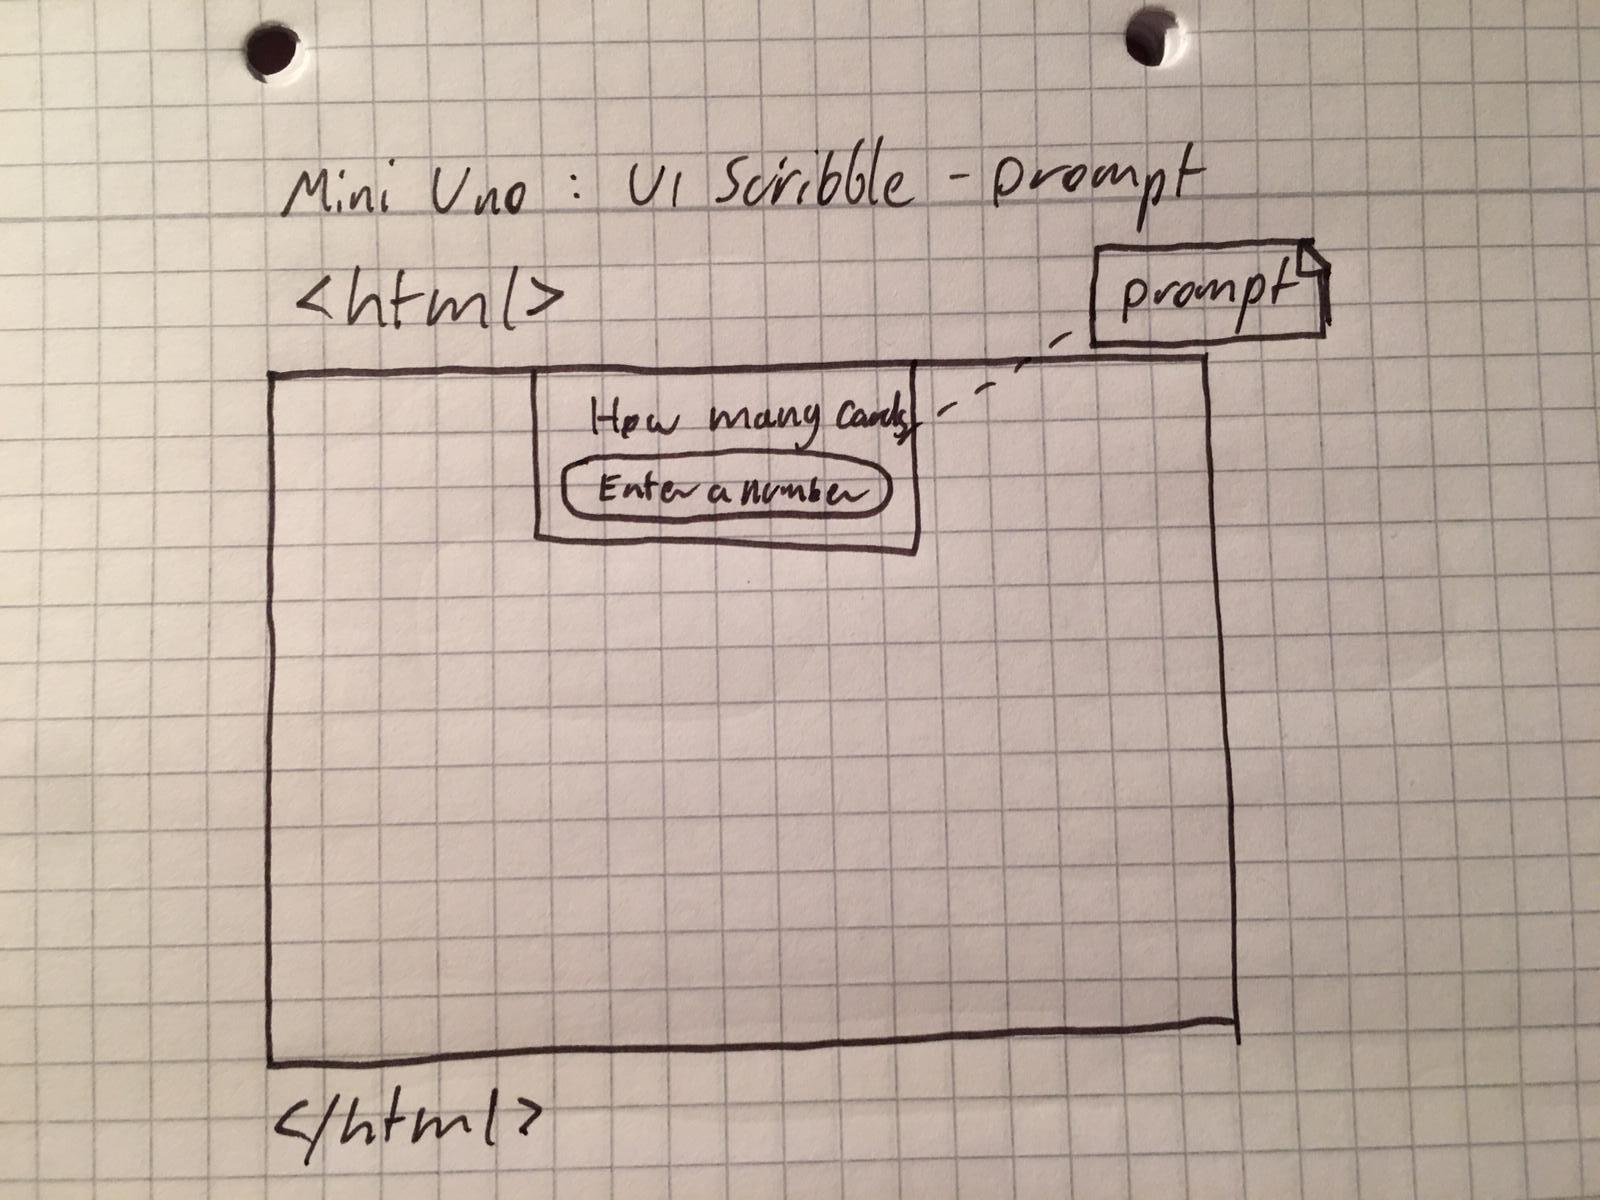 Mini Uno : UI Scribble - prompt
<html>
prompt
How many cards
Enter a number
</html>